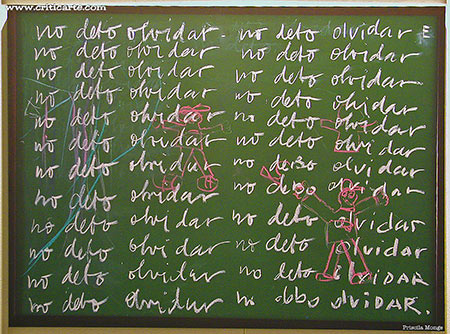 www.criticarte.com
no debo olvidar. no debo olvidar E
no debo olvidar no debo olvidar
no debo olvidar no debo olvidar
no debo olvidar no debo olvidar
no debo olvidar no debo olvidar
no debo olvidar no debo olvidar
no debo olvidar no debo olvidar
no debo olvidar no debo olvidar
no debo olvidar no debo olvidar
no debo olvidar no debo olvidar
no debo olvidar no debo olvidar
no debo olvidar no debo olvidar.
Priscilla Monge